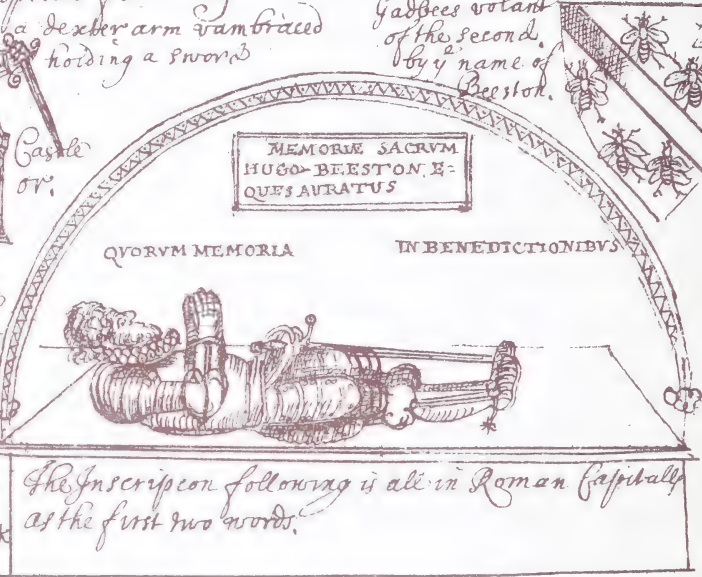 a dexter arm vambraced
holding a sword
Gadbees volant
of the second,
by yᵉ name of
Beeston.
Castle
or.
MEMORIÆ SACRVM
HUGO BEESTON E=
QUES AURATUS
QVORVM MEMORIA
IN BENEDICTIONIBVS
The Inscripcon following is all in Roman Capitalls
as the first two words.